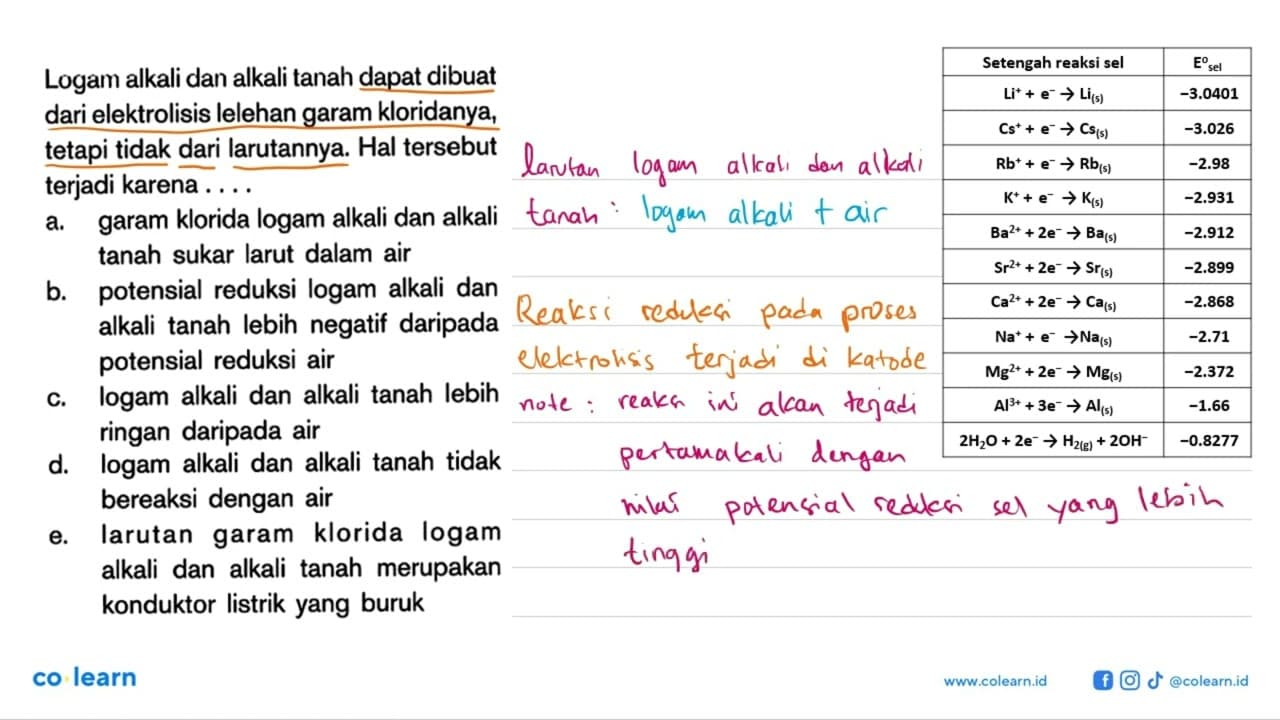 Logam alkali dan alkali tanah dapat dibuat
dari elektrolisis lelehan garam kloridanya,
tetapi tidak dari larutannya. Hal tersebut
terjadi karena . . . .
a. garam klorida logam alkali dan alkali
tanah sukar larut dalam air
b. potensial reduksi logam alkali dan
alkali tanah lebih negatif daripada
potensial reduksi air
c. logam alkali dan alkali tanah lebih
ringan daripada air
d. logam alkali dan alkali tanah tidak
bereaksi dengan air
e. larutan garam klorida logam
alkali dan alkali tanah merupakan
konduktor listrik yang buruk
larutan logam alkali dan alkali
tanah : logam alkali + air
Reaksi reduksi pada proses
elektrolisis terjadi di katode
note : reaksi ini akan terjadi
pertamakali dengan
nilai potensial reduksi sel yang lebih
tinggi
Setengah reaksi sel E⁰sel
Li⁺ + e⁻ → Li(s) −3.0401
Cs⁺ + e⁻ → Cs(s) −3.026
Rb⁺ + e⁻ → Rb(s) −2.98
K⁺ + e⁻ → K(s) −2.931
Ba²⁺ + 2e⁻ → Ba(s) −2.912
Sr²⁺ + 2e⁻ → Sr(s) −2.899
Ca²⁺ + 2e⁻ → Ca(s) −2.868
Na⁺ + e⁻ →Na(s) −2.71
Mg²⁺ + 2e⁻ → Mg(s) −2.372
Al³⁺ + 3e⁻ → Al(s) −1.66
2H₂O + 2e⁻ → H₂(g) + 2OH⁻ −0.8277
co learn
www.colearn.id
@colearn.id